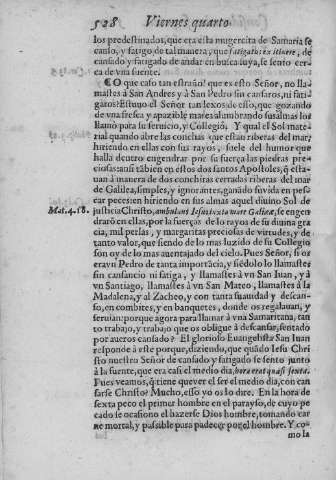 528 Viernes quarto
los predestinados, que era esta mugercita de Samaria se
canso, y fatigo, de tal manera, que fatigatus ex itinere, de
cansado y fatigado de andar en busca suya, se sento cerca
de vna fuente.
O que caso tan estraño! que es esto Señor, no lla
mastes a San Andres y a San Pedro sin cansaros, ni fati
garos? Estuuo el Señor tan lexos de esso, que gozando
de vna fresca y apazible marea alumbrando sus almas los
llamò para su seruicio, y Collegio. Y qual el Sol mate
rial quando abre las conchas que estan riberas del mar,
hiriendo en ellas con sus rayos, suele del humor que
halla dentro engendrar por su fuerça las piedras pre
ciosas: assi tãbien en estos dos santos Apostoles, q̃ esta-
uan a manera de dos conchas cerradas riberas del mar
de Galilea, simples, y ignorantes, ganãdo su vida en pes
car peces: en hiriendo en sus almas aquel diuino Sol de
Mat. 4. 18. justicia Christo, ambulans Iesus iuxta mare Galileæ, se engẽ
draron en ellas, por la fuerça de lo rayos de su diuina gra
cia, mil perlas, y margaritas preciosas de virtudes, y de
tanto valor, que siendo de lo mas luzido de su Collegio
son oy de lo mas auentajado del cielo. Pues Señor, si os
era vn Pedro de tanta importãcia, y siẽdolo lo llamastes
sin cansancio ni fatiga, y llamastes à vn San Iuan, y à
vn Santiago, llamastes à vn San Mateo, llamastes à la
Madalena, y al Zacheo, y con tanta suauidad y descan-
so, en combites, y en banquetes, donde os regalauan, y
seruian: porque agora para llamar à vna Samaritana, tan
to trabajo, y trabajo que os obligue à descansar, sentado
por aueros cansado? El glorioso Euangelista San Iuan
responde à este porque, diziendo, que quãdo Iesu Chri
sto nuestro Señor de cansado y fatigado se sento junto
à la fuente, que era casi el medio dia, hora erat quasi sexta.
Pues veamos, q̃ tiene que ver el ser el medio dia, con can
sarse Christo? Mucho, esso yo os lo dire. En la hora de
sexta peco el primer hombre en el parayso, de cuyo pe
cado se ocasiono el hazerse Dios hombre, tomando car
ne mortal, y passible para padecer por el hombre. Y co-
mo la